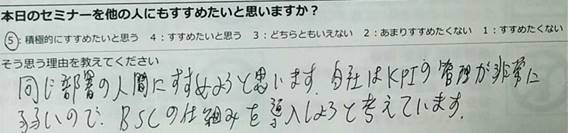 本日のセミナーを他の人にもすすめたいと思いますか？
5：積極的にすすめたいと思う 4：すすめたいと思う 3：どちらともいえない 2：あまりすすめたくない 1：すすめたくない
そう思う理由を教えてください
同じ部署の人間にすすめようと思います。自社はKPIの管理が非常に
弱いので、BSCの仕組みを導入しようと考えています。